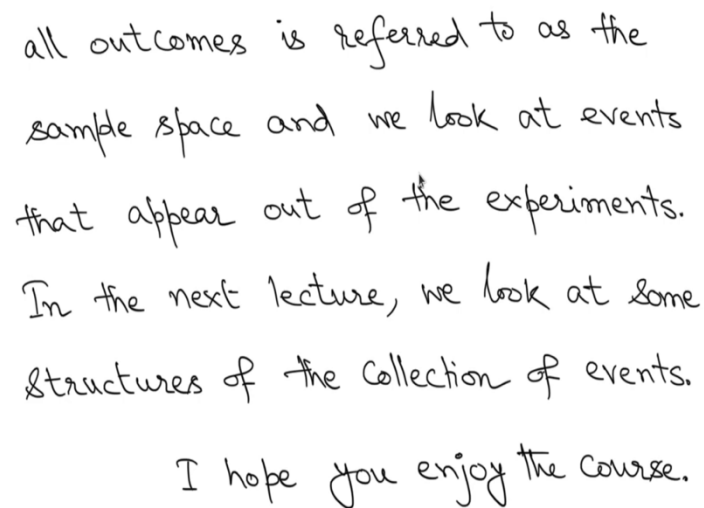 all outcomes is referred to as the
sample space and we look at events
that appear out of the experiments.
In the next lecture, we look at some
structures of the collection of events.
I hope you enjoy the course.